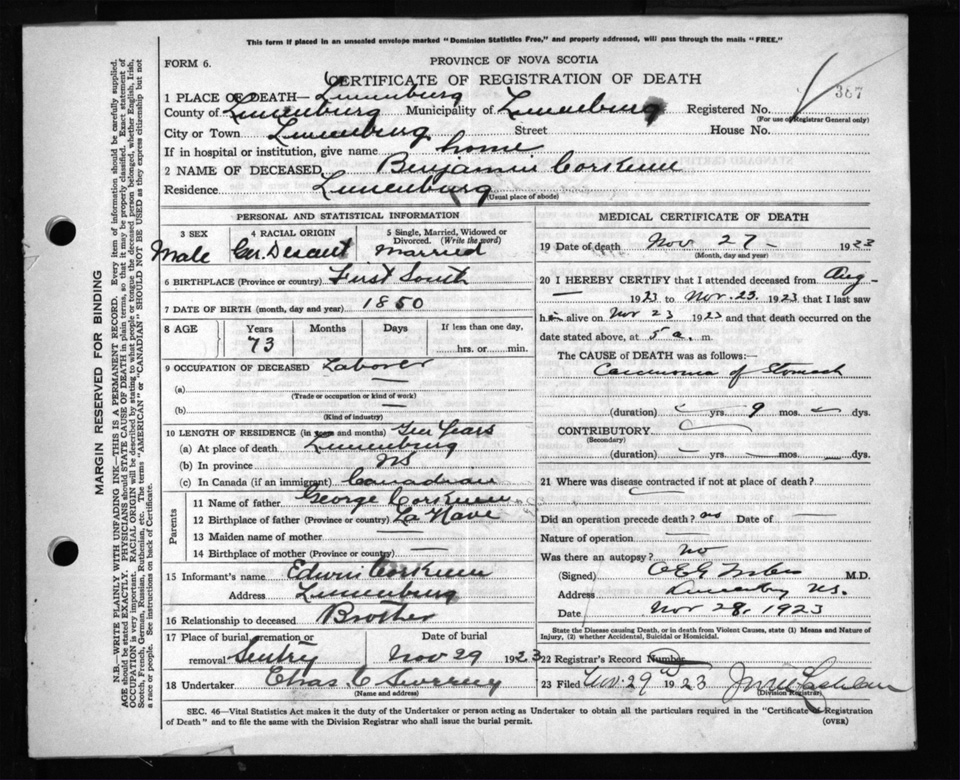 This form if placed in an unsealed envelope marked "Dominion Statistics Free," and properly addressed, will pass through the mails "FREE."
FORM 6.
PROVINCE OF NOVA SCOTIA
CERTIFICATE OF REGISTRATION OF DEATH
367
1 PLACE OF DEATH— Lunenburg
County of Lunenburg Municipality of Lunenburg Registered No.
(For use of Registrar General only)
City or Town Lunenburg Street House No.
If in hospital or institution, give name home
2 NAME OF DECEASED Benjamin Corkum
Residence Lunenburg
(Usual place of abode)
PERSONAL AND STATISTICAL INFORMATION
3 SEX Male
4 RACIAL ORIGIN Ger. Descent
5 Single, Married, Widowed or Divorced. (Write the word) Married
6 BIRTHPLACE (Province or country) First South
7 DATE OF BIRTH (month, day and year) 1850
8 AGE Years 73 Months Days If less than one day, hrs. or min.
9 OCCUPATION OF DECEASED Laborer
(a) —
(Trade or occupation or kind of work)
(b) —
(Kind of industry)
10 LENGTH OF RESIDENCE (in years and months) Years
(a) At place of death Lunenburg
(b) In province NS
(c) In Canada (if an immigrant) Canadian
Parents
11 Name of father George Corkum
12 Birthplace of father (Province or country) La Have
13 Maiden name of mother —
14 Birthplace of mother (Province or country) —
15 Informant's name Edwin Corkum
Address Lunenburg
16 Relationship to deceased Brother
17 Place of burial, cremation or removal Date of burial Nov 29 1923
18 Undertaker Chas. C
(Name and address)
MEDICAL CERTIFICATE OF DEATH
19 Date of death Nov 27 — 1923
(Month, day and year)
20 I HEREBY CERTIFY that I attended deceased from Aug —
1923 to Nov. 23. 1923 that I last saw
him alive on Nov 23 1923 and that death occurred on the
date stated above, at 5 a. m.
The CAUSE of DEATH was as follows:—
Carcinoma of Stomach
(duration) yrs. 9 mos. dys.
CONTRIBUTORY
(Secondary)
(duration) yrs. mos. dys.
21 Where was disease contracted if not at place of death?
Did an operation precede death? no Date of —
Nature of operation —
Was there an autopsy? no
(Signed) M.D.
Address Lunenburg NS.
Date Nov 28, 1923
State the Disease causing Death, or in death from Violent Causes, state (1) Means and Nature of Injury, (2) whether Accidental, Suicidal or Homicidal.
22 Registrar's Record Number
23 Filed Nov. 29th 1923
(Division Registrar)
SEC. 46—Vital Statistics Act makes it the duty of the Undertaker or person acting as Undertaker to obtain all the particulars required in the "Certificate of Registration
of Death" and to file the same with the Division Registrar who shall issue the burial permit.
(OVER)
MARGIN RESERVED FOR BINDING
N.B.—WRITE PLAINLY WITH UNFADING INK—THIS IS A PERMANENT RECORD. Every item of information should be carefully supplied.
AGE should be stated EXACTLY. PHYSICIANS should STATE CAUSE OF DEATH in plain terms, so that it may be properly classified. Exact statement of
OCCUPATION is very important. RACIAL ORIGIN will be described by stating to what people or tongue the deceased person belonged, whether English, Irish,
Scotch, French, German, Russian, Ruthenian, etc. The terms "AMERICAN" or "CANADIAN" SHOULD NOT BE USED as they express citizenship but not
a race or people. See instructions on back of Certificate.